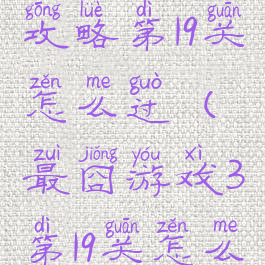 gōng lüè dì guān
攻略第19关
zěn me guò
怎么过（
zuì jiǒng yóu xì
最囧游戏3
dì guān zěn me
第19关怎么